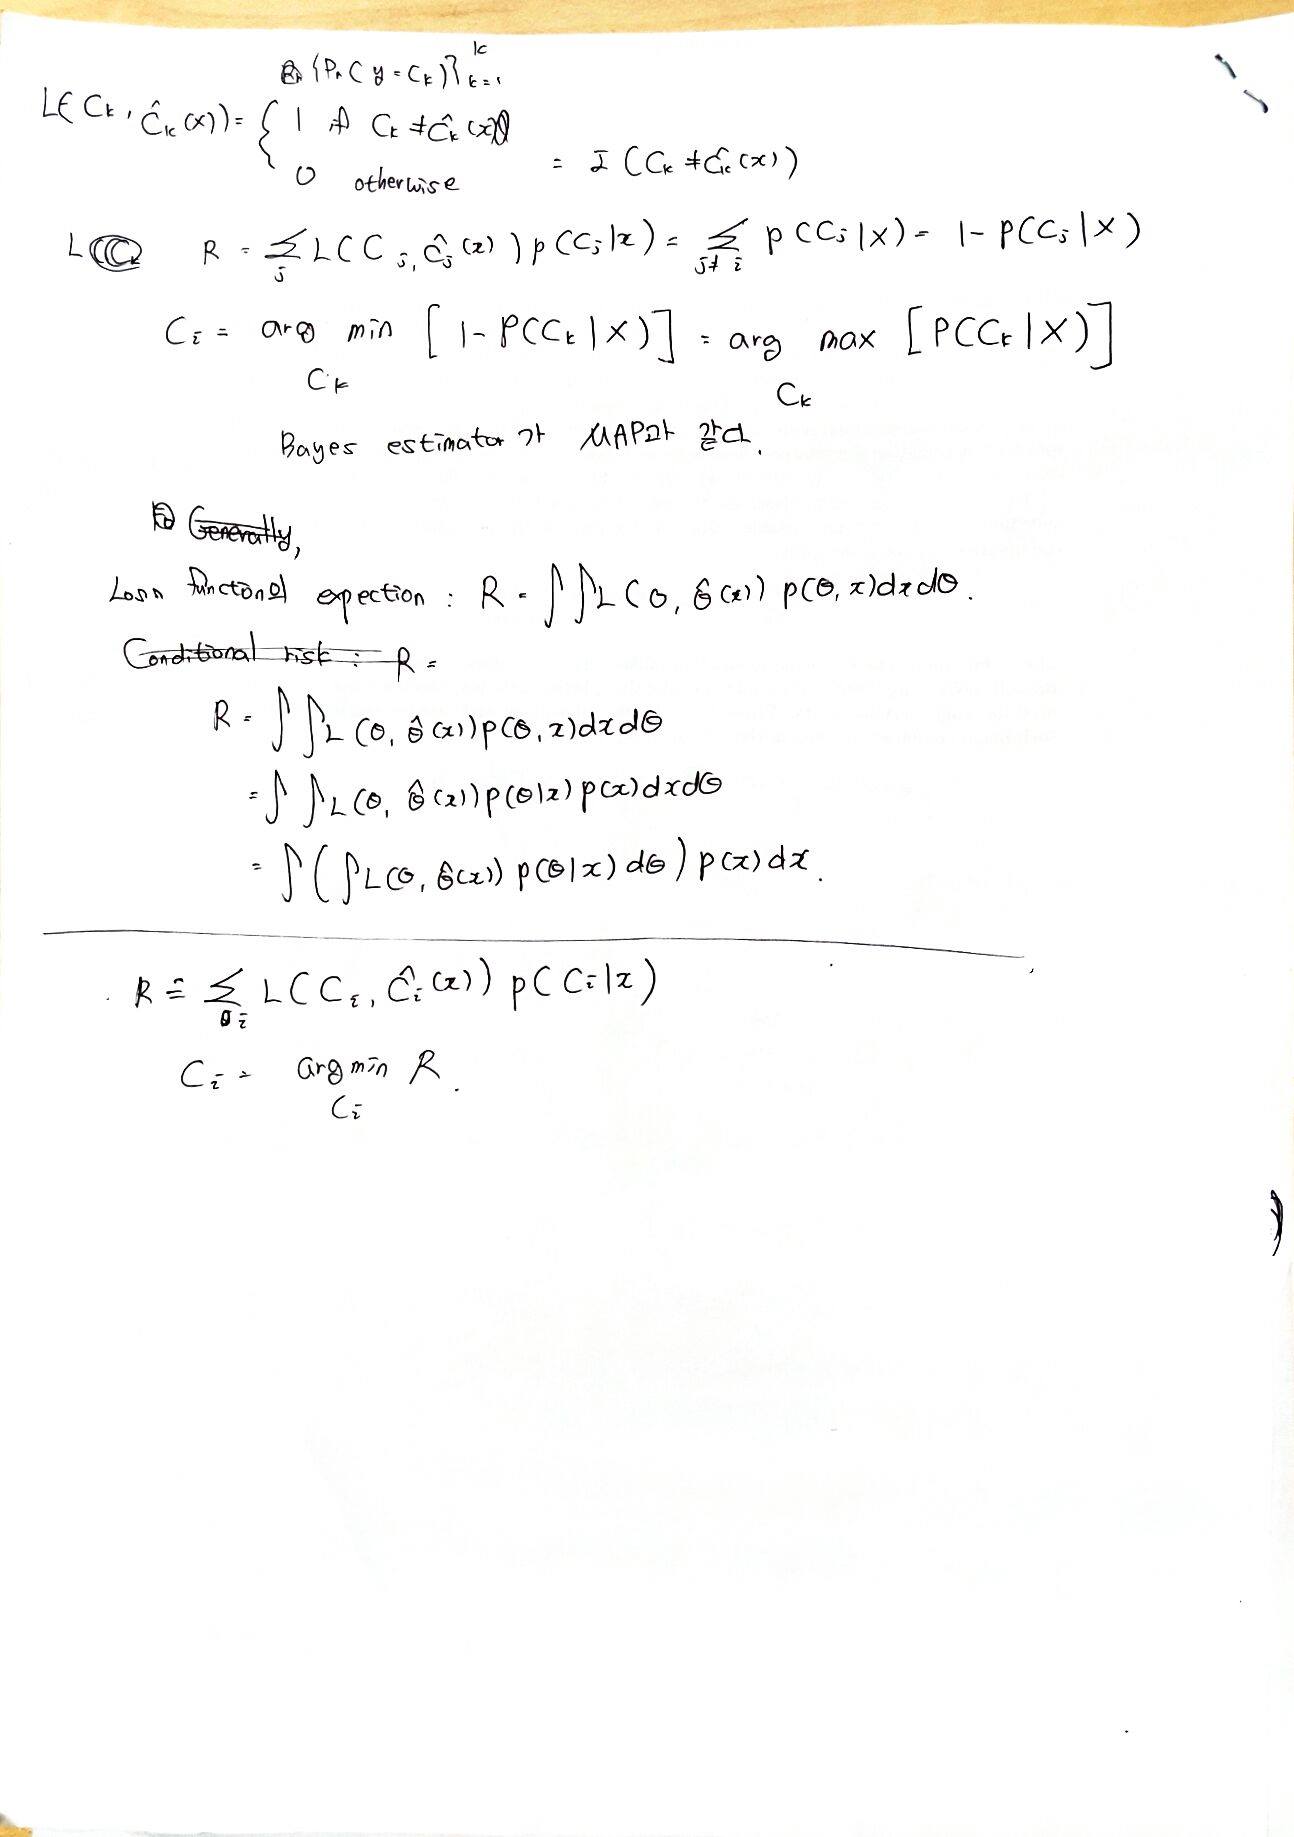 {Pr(y=Ck)}ᴷ k=1
L(Ck, Ĉk(x)) = { 1 if Ck ≠ Ĉk(x)
0 otherwise = I(Ck ≠ Ĉk(x))
L R = Σj L(Cj, Ĉj(x)) p(Cj|x) = Σj≠i p(Cj|X) = 1 - p(Cj|X)
Ci = arg min [1 - P(Ck|X)] = arg max [P(Ck|X)]
Ck Ck
Bayes estimator 가 MAP와 같다.
Generally,
Loss function의 expection : R = ∫∫L(θ, θ̂(x)) p(θ, x)dxdθ.
Conditional risk : R =
R = ∫∫L(θ, θ̂(x))p(θ, x)dxdθ
= ∫∫L(θ, θ̂(x))p(θ|x)p(x)dxdθ
= ∫(∫L(θ, θ̂(x)) p(θ|x) dθ) p(x)dx.
R = Σi L(Ci, Ĉi(x)) p(Ci|x)
Ci = arg min R.
Ci